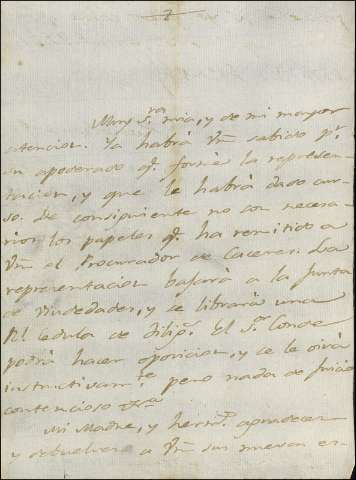 Muy S.ra mia, y de mi mayor
atencion. Ya habrá Vm sabido p.r
su apoderado q.e formé la represen-
tacion, y que le habrá dado cur-
so. De consiguiente no son necesa-
rios los papeles q.e ha remitido a
Vm el Procurador de Caceres. La
representacion bajará a la Junta
de Viudedades, y se librará una
Rl Cedula de Dilig.s El S.r Conde
podrá hacer oposicion, y se le oirá
instructivam.te pero nada de juicio
contencioso
Mi Madre, y herm.s agradecen
y debuelven a Vm sus nuevas ex-